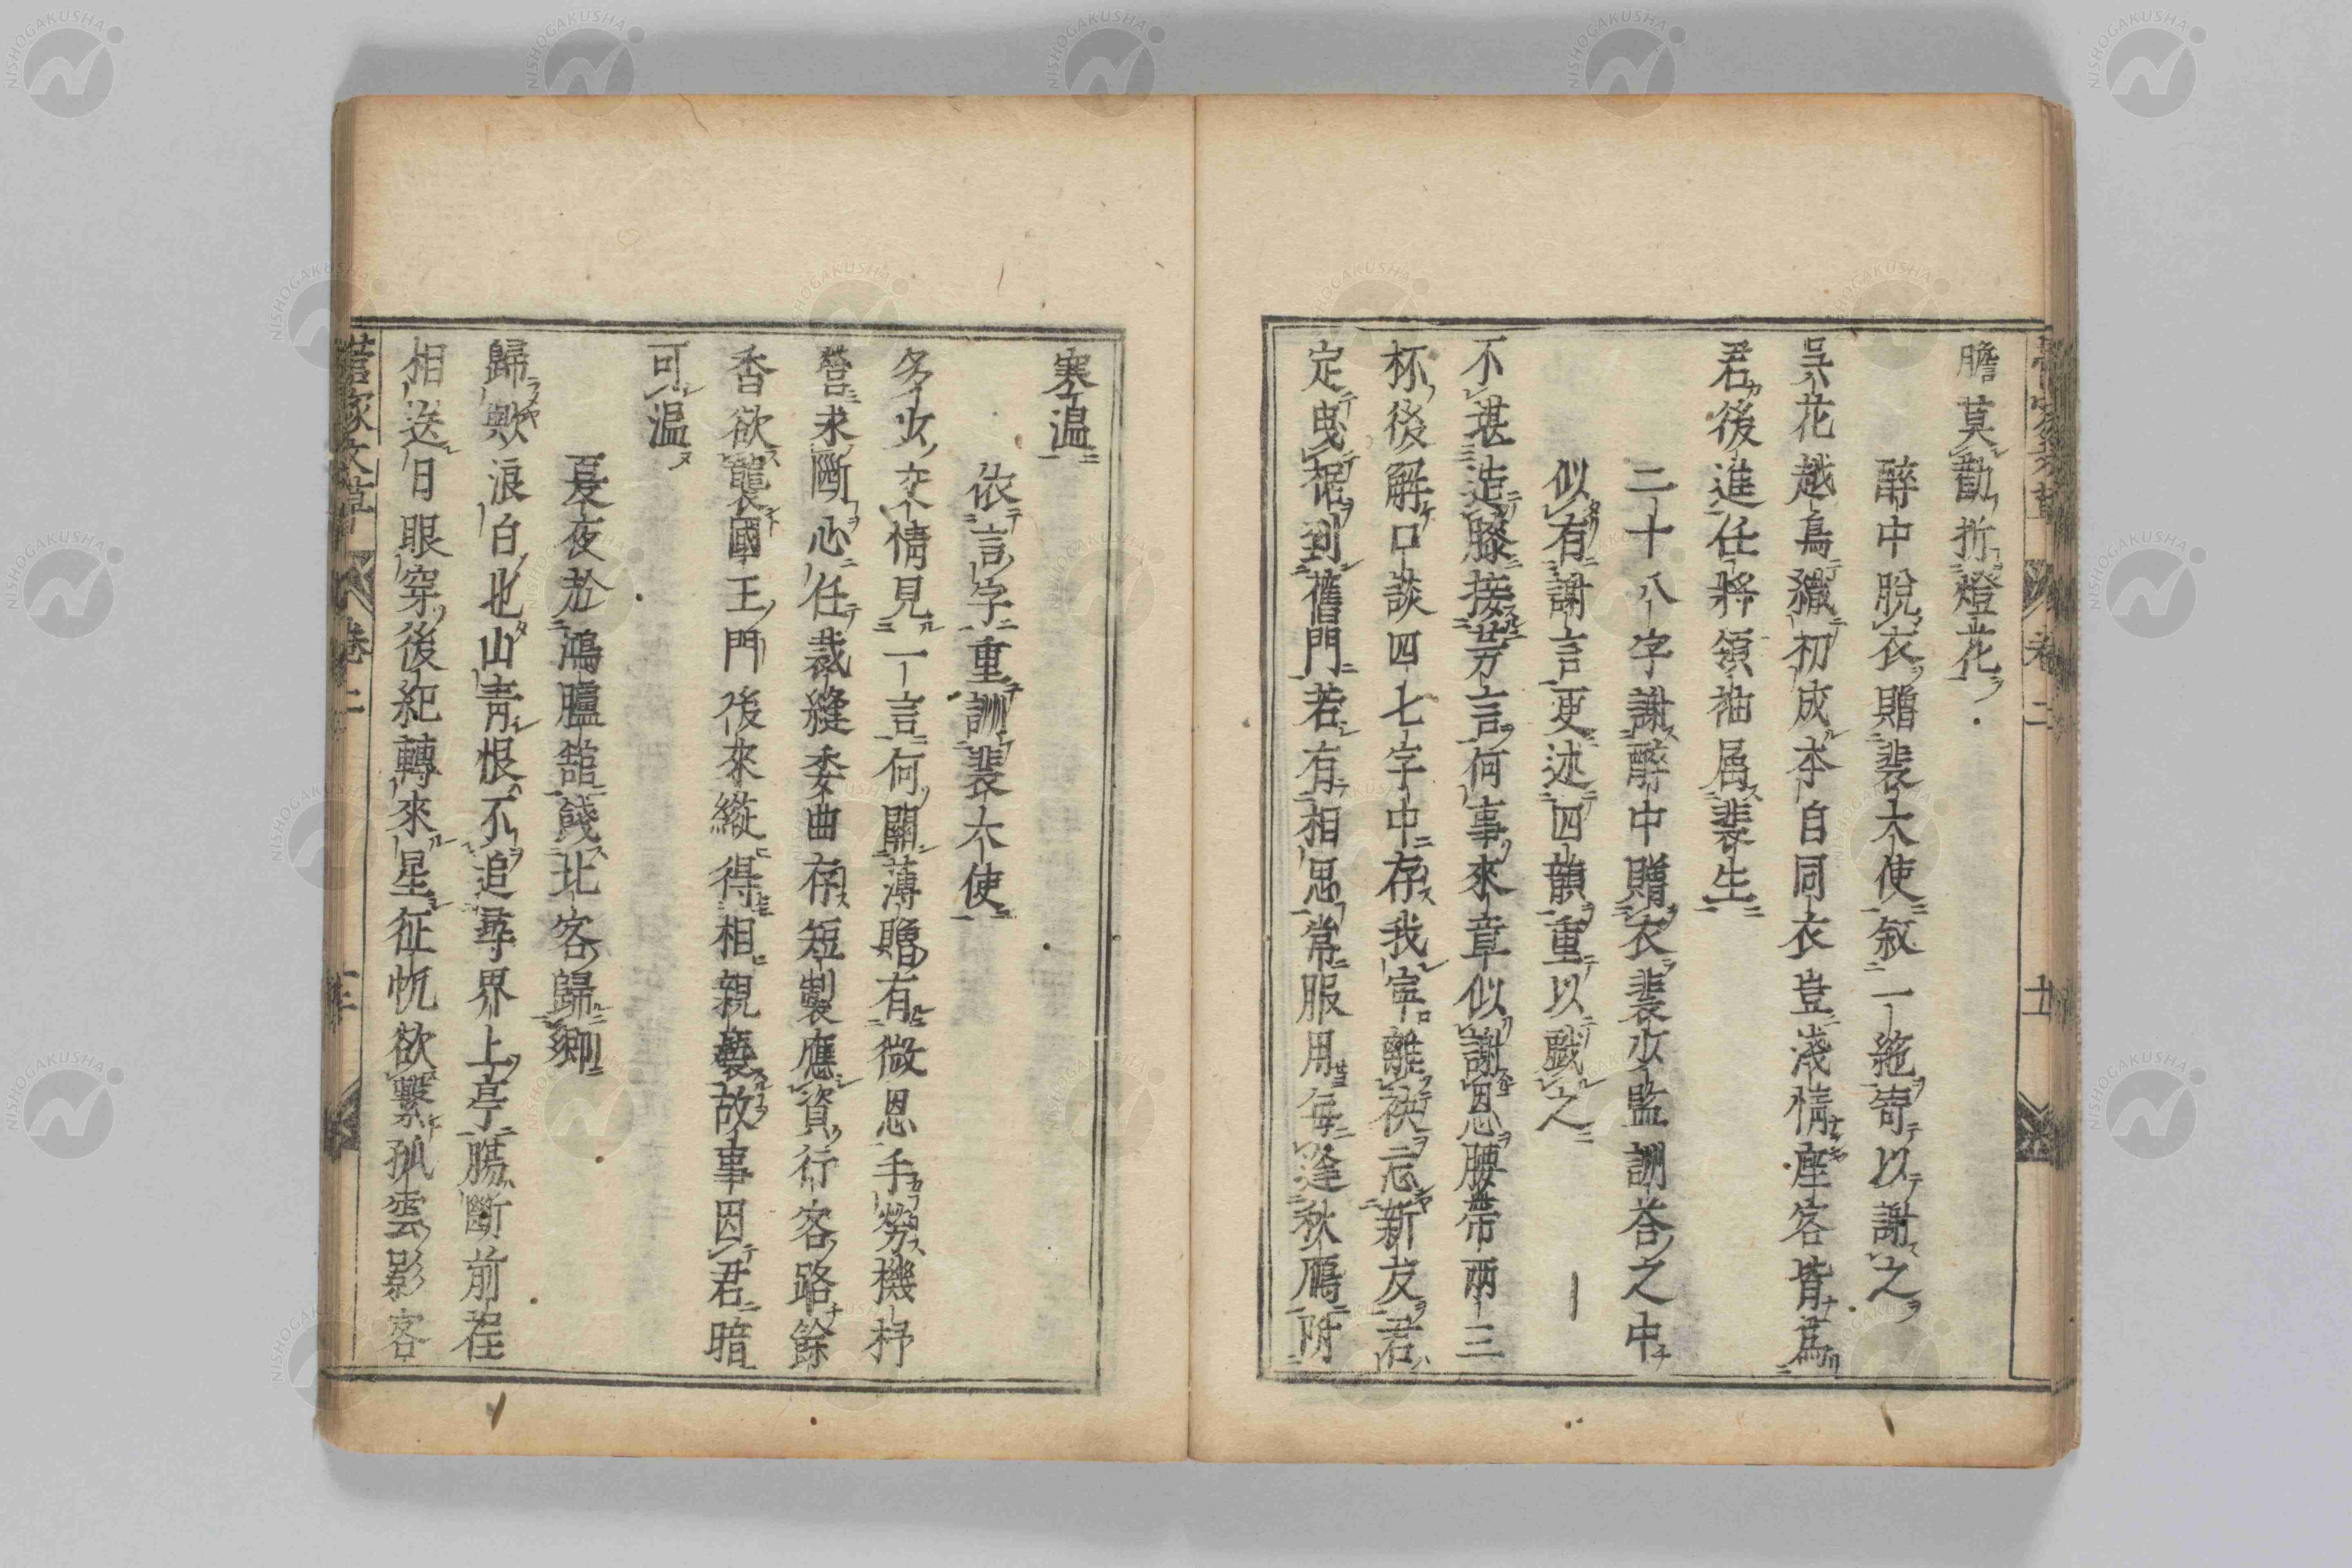 膽莫勸折燈花
醉中脫衣贈裴大使叙一絶寄以謝之
吳花越鳥織初成本自同衣豈淺情座客皆爲
君後進任將領袖屬裴生
二十八字謝醉中贈衣裴少監訓荅之中
似有謝言更述四韻重以戲之
不堪造膝接芳言何事來章似謝恩腰帶兩三
杯後解口談四七字中存我寧離袂忘新友君
定曳裾到舊門若有相思常服用每逢秋鴈附
寒温
依言字重訓裴大使
多少交情見一言何關薄贈有微恩手勞機杼
營求斷心任裁縫委曲存短製應資行客路餘
香欲襲國王門後來縱得相親褻故事因君暗
可温
夏夜於鴻臚館餞北客歸鄉
歸歟浪白也山青恨不追尋界上亭腸斷前程
相送日眼穿後紀轉來星征帆欲繫孤雲影客
菅家文草 卷二
NISHOGAKUSHA